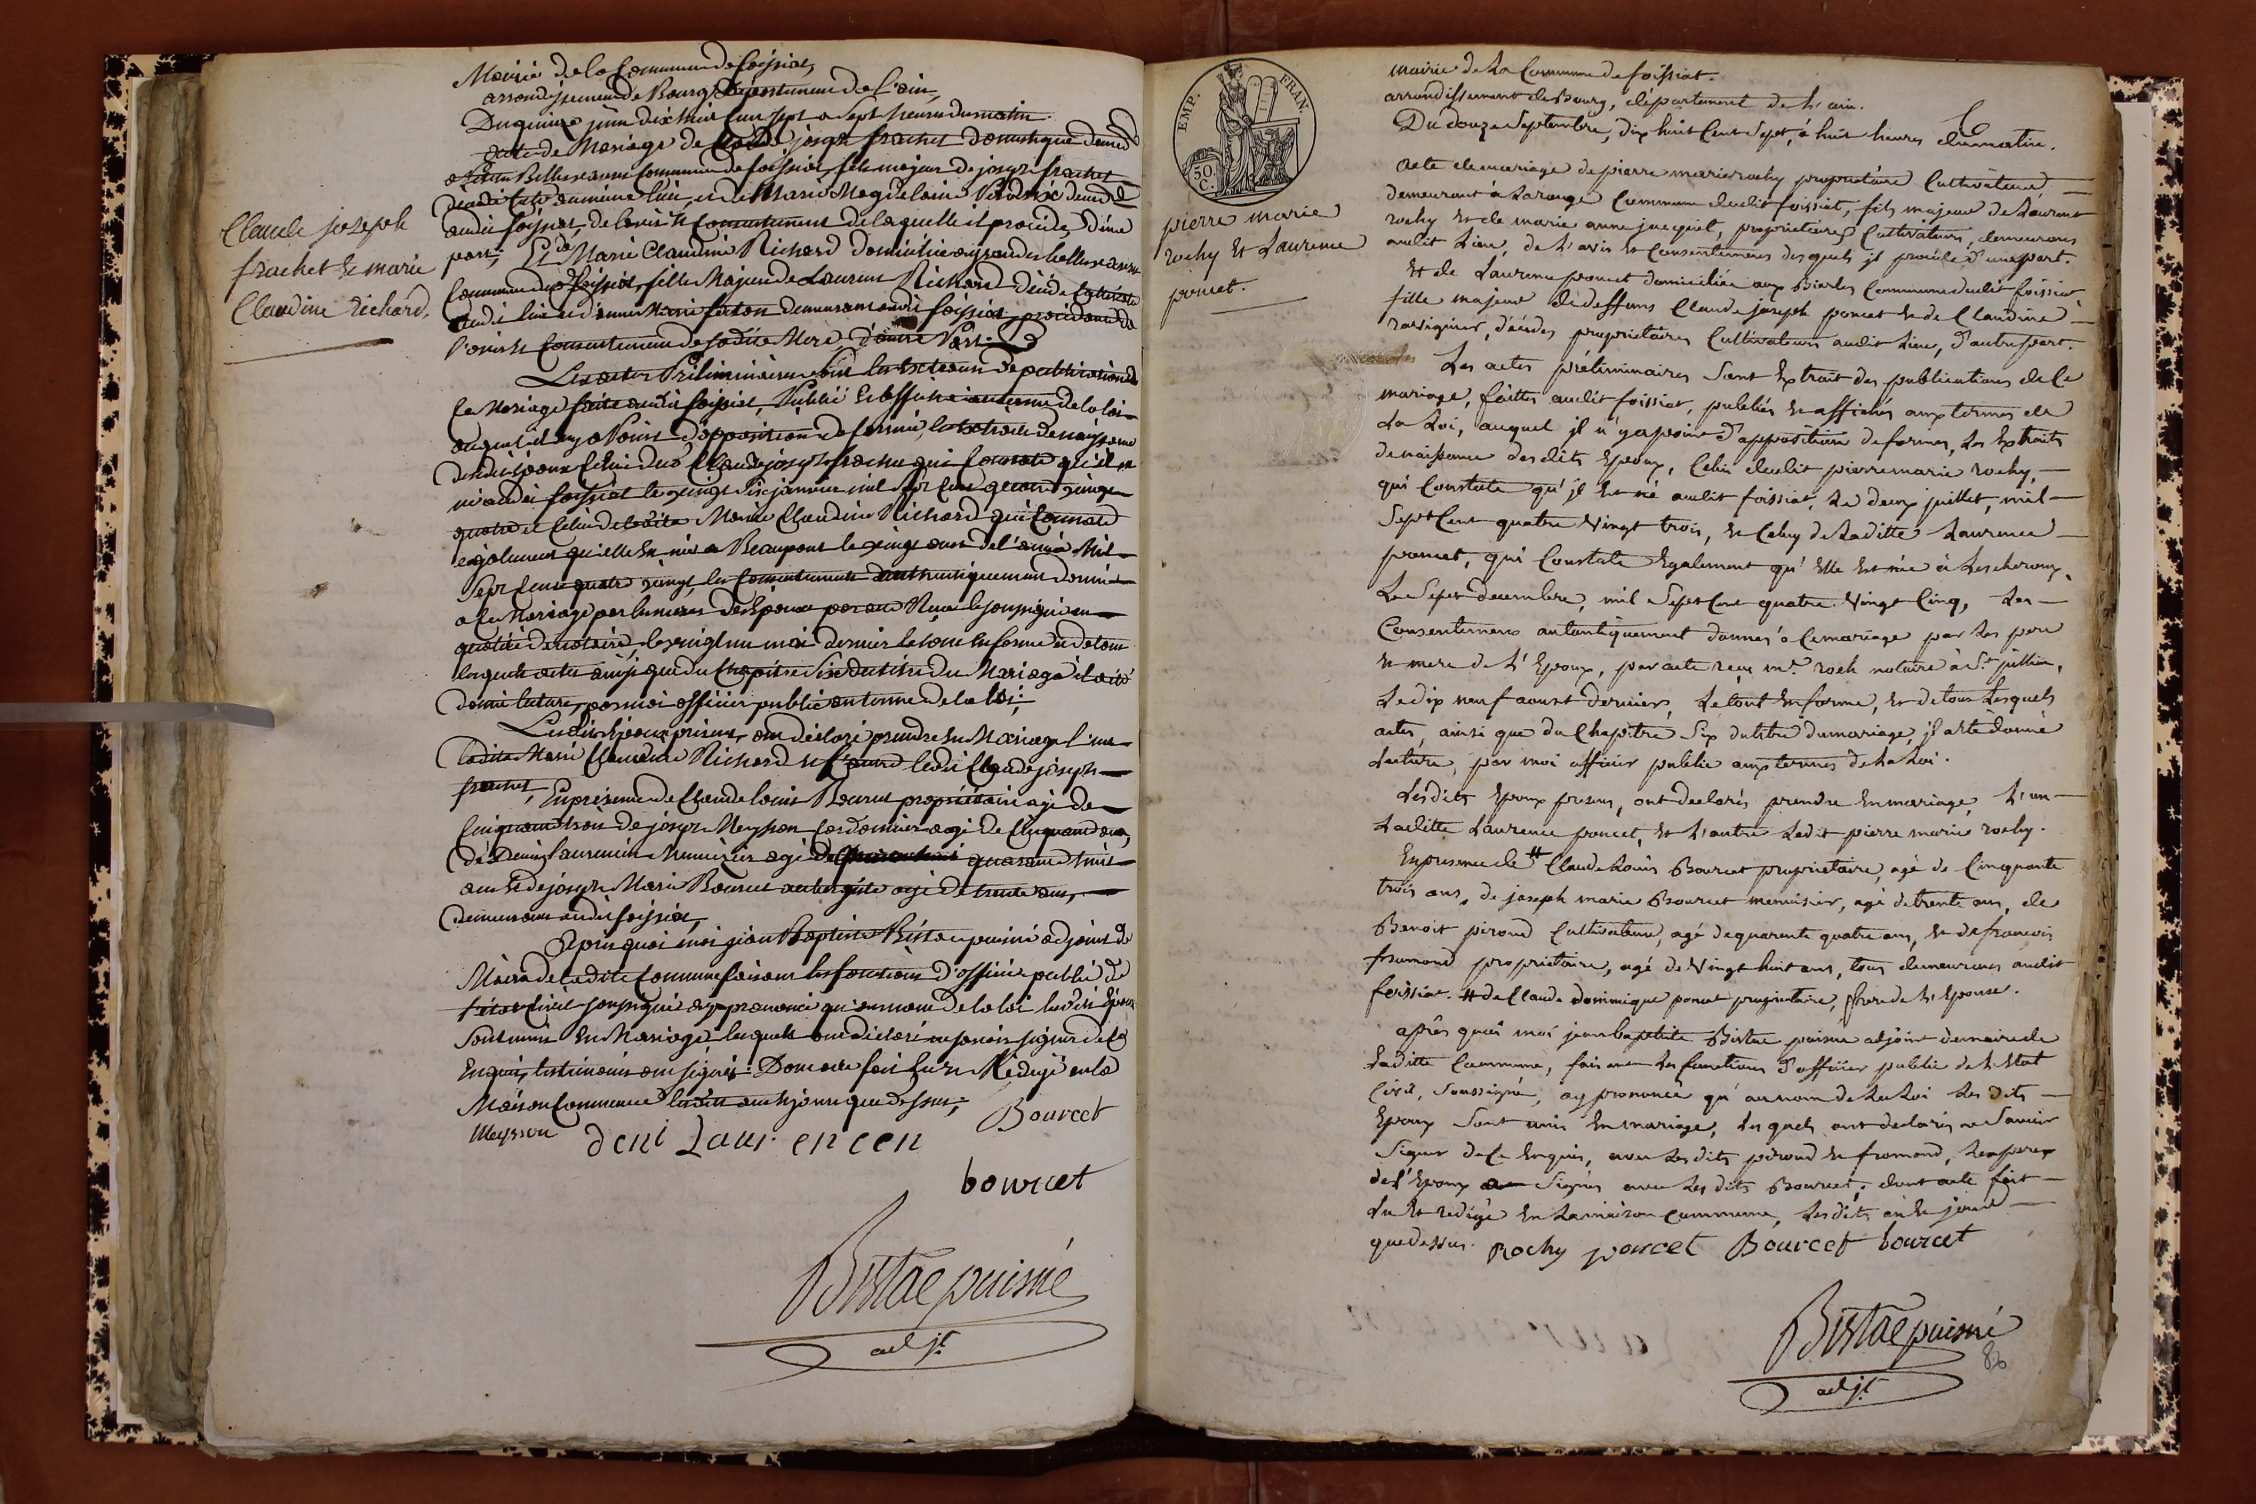 Mairie de la Commune de foissiat,
arrondissement de Bourg Département de l'ain,
Du quinze juin dix huit cent sept a Sept heures du matin
acte de Mariage de Claude joseph frachet domestique demeurt
commune de foissiat, fils majeur de joseph frachet
décédé audit lieu, et de Marie Magdelaine demeurt
audit foissiat, de l'avis et Consentement de laquelle il procède, d'une
part, Et de Marie Claudine Richard domiciliée
Commune dud. foissiat, fille Majeure de Laurent Richard décédé
audit lieu et demeurant audit foissiat, procédant de
l'avis et Consentement de sadite Mere, d'autre Part.
Les actes Préliminaires sont les extraits de publications de
ce Mariage faite audit foissiat, Publié et affiché aux termes de la loi
auquel il n'y a Point d'opposition de formée, les extraits de naissance
desdits époux Celui dud. Claude joseph frachet qui Constate qu'il est
né audit foissiat le vingt six janvier mil sept cent quatre vingt
quatre et Celui de ladite Marie Claudine Richard qui Constate
également qu'elle est née a Beaupont le vingt aout de l'année Mil
Sept Cent quatre vingt, les Consentements authentiquement donnés
a ce Mariage par les meres des Epoux par acte Reçu le soussigné en
qualité de notaire, le vingt un mai dernier le tout en forme et de tous
lesquels actes ainsi que du Chapitre Six du titre du Mariage il a été
donné lecture, par moi officier public aux termes de la loi;
Lesdits époux présents, ont déclaré prendre en Mariage l'un
ladite Marie Claudine Richard et l'autre ledit Claude joseph
frachet, En présence de Claude louis Bourcet propriétaire agé de
Cinquante trois de joseph Meysson Cordonnier agé de Cinquante ans,
de Denis laurencin Menuisier agé de quarante huit
ans et de joseph Marie Bourcet aubergiste agé de trente ans,
demeurant audit foissiat,
Après quoi moi jean Baptiste Bistac puisné adjoint du
Maire de ladite Commune faisant les fonctions d'officier public de
l'état Civil soussigné ay prononcé qu'au nom de la loi lesdits époux
Sont unis en Mariage, lesquels ont déclaré ne savoir signer de ce
Enquis, les témoins ont signé. Dont acte fait lu et Redigé en la
Maison Commune lesdits an et jour que dessus,
Bourcet
Meysson
deni Laur en cen
bourcet
Bistac puisné
adjt.
Claude joseph
frachet et marie
Claudine richard.
EMP. FRAN.
50 C.
pierre marie
rochy et Laurence
poncet.
mairie de La Commune de foissiat.
arrondissement de Bourg, département de L'ain.
Du douze Septembre, dix huit Cent Sept, à huit heures du matin.
acte de mariage de pierre marie rochy propriétaire Cultivateur
demeurant à Commune dudit foissiat, fils majeur de Laurent
rochy et de marie anne jacquet, propriétaires Cultivateurs, demeurans
audit Lieu, de L'avis et Consentement desquels il procède d'une part.
Et de Laurence poncet domiciliée aux Biolles Commune dudit foissiat,
fille majeure de deffuns Claude joseph poncet et de Claudine
ravignier, décédés propriétaires Cultivateurs audit Lieu, d'autre part.
Les actes préliminaires Sont Extrait des publications de Ce
mariage, faittes audit foissiat, publiés et affichés aux termes de
La Loi, auquel il n'y a point d'opposition de formée, Les Extraits
de naissance desdits Epoux, Celui dudit pierre marie rochy,
qui Constate qu'il Est né audit foissiat, Le deux juillet, mil
Sept Cent quatre Vingt trois, et Celuy de Laditte Laurence
poncet, qui Constate Egalement qu'Elle Est née à Lescheroux,
Le Sept decembre, mil Sept Cent quatre Vingt Cinq, Les
Consentemens autantiquement donnés à Ce mariage par Les pere
et mere de L'Epoux, par acte reçu me. roch notaire à St. jullien,
Le dix neuf aoust dernier, Le tout En forme, et de tous Lesquels
actes, ainsi que du Chapitre Six du titre du mariage, il a été donné
Lecture, par moi officier public aux termes de La Loi.
Lesdits Epoux présens, ont declarés prendre En mariage, L'un
Laditte Laurence poncet, et L'autre Ledit pierre marie rochy.
En presence de # Claude Louis Bourcet propriétaire, agé de Cinquante
trois ans, de joseph marie Bourcet menuisier, agé de trente ans, de
Benoit piroud Cultivateur, agé de quarante quatre ans, et de francois
fromond propriétaire, agé de Vingt huit ans, tous demeurans audit
foissiat. # de Claude dominique poncet propriétaire, frere de L'Epouse.
après quoi moi jean baptiste Bistac puisné adjoint du maire de
Laditte Commune, faisant Les fonctions d'officier public de L'Etat
Civil, Soussigné, ay prononcé qu'au nom de La Loi Les dits
Epoux Sont unis En mariage, Lesquels ont declarés ne Savoir
Signer de Ce Enquis, avec Lesdits piroud et fromond, Le pere
de l'Epoux Signés avec Les dits Bourcet, dont acte fait
Lu Et redigé En La maison Commune, Lesdits an Et jour
que dessus. Rochy poncet Bourcet bourcet
Bistac puisné
adjt.
86